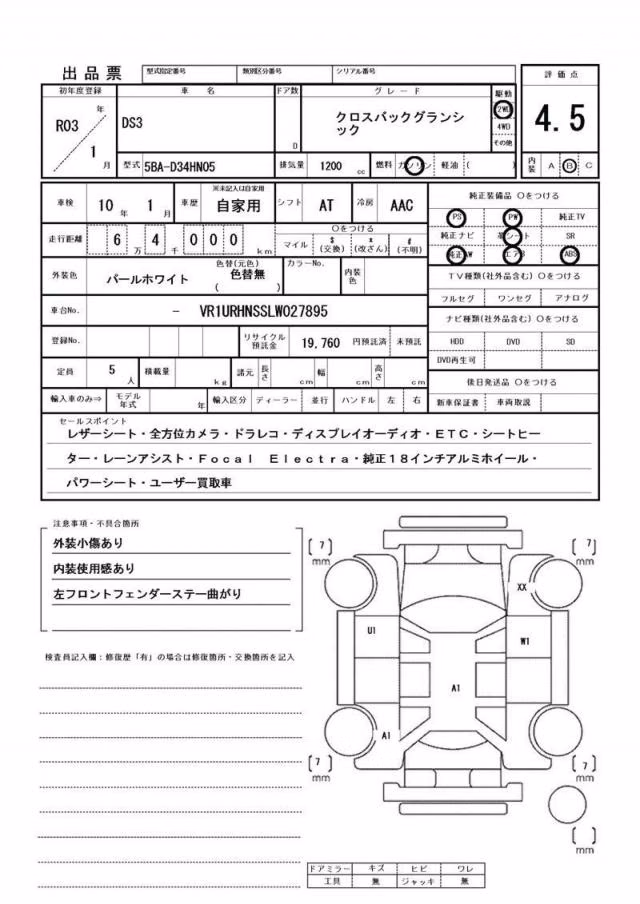 出品票
型式指定番号 類別区分番号 シリアル番号
評価点
4.5
内装 A B C
初年度登録 車名 ドア数 グレード 駆動
R03 年 1 月
DS3
D
クロスバックグランシック
2WD
4WD
その他
型式 5BA-D34HN05 排気量 1200 cc 燃料 ガソリン 軽油 ( )
車検 10 年 1 月 車歴 ※未記入は自家用 自家用 シフト AT 冷房 AAC
走行距離 6 万 4 千 0 0 0 km
○をつける
マイル $ (交換) x (改ざん) # (不明)
外装色 パールホワイト 色替(元色) 色替無 ( ) カラーNo. 内装色
車台No. - VR1URHNSSLW027895
登録No. リサイクル預託金 19,760 円預託済 未預託
定員 5 人 積載量 kg 諸元 長さ cm 幅 cm 高さ cm
輸入車のみ⇒ モデル年式 年 輸入区分 ディーラー 並行 ハンドル 左 右
純正装備品 ○をつける
PS PW 純正TV
純正ナビ 革シート SR
純正AW エアB ABS
TV種類(社外品含む) ○をつける
フルセグ ワンセグ アナログ
ナビ種類(社外品含む) ○をつける
HDD DVD SD
DVD再生可
後日発送品 ○をつける
新車保証書 車両取説
セールスポイント
レザーシート・全方位カメラ・ドラレコ・ディスプレイオーディオ・ETC・シートヒー
ター・レーンアシスト・Focal Electra・純正18インチアルミホイール・
パワーシート・ユーザー買取車
注意事項・不具合箇所
外装小傷あり
内装使用感あり
左フロントフェンダーステー曲がり
検査員記入欄：修復歴「有」の場合は修復箇所・交換箇所を記入
[ 7 ] mm
[ 7 ] mm
XX
U1
W1
A1
A1
[ 7 ] mm
[ 7 ] mm
[ ] mm
ドアミラー キズ ヒビ ワレ
工具 無 ジャッキ 無